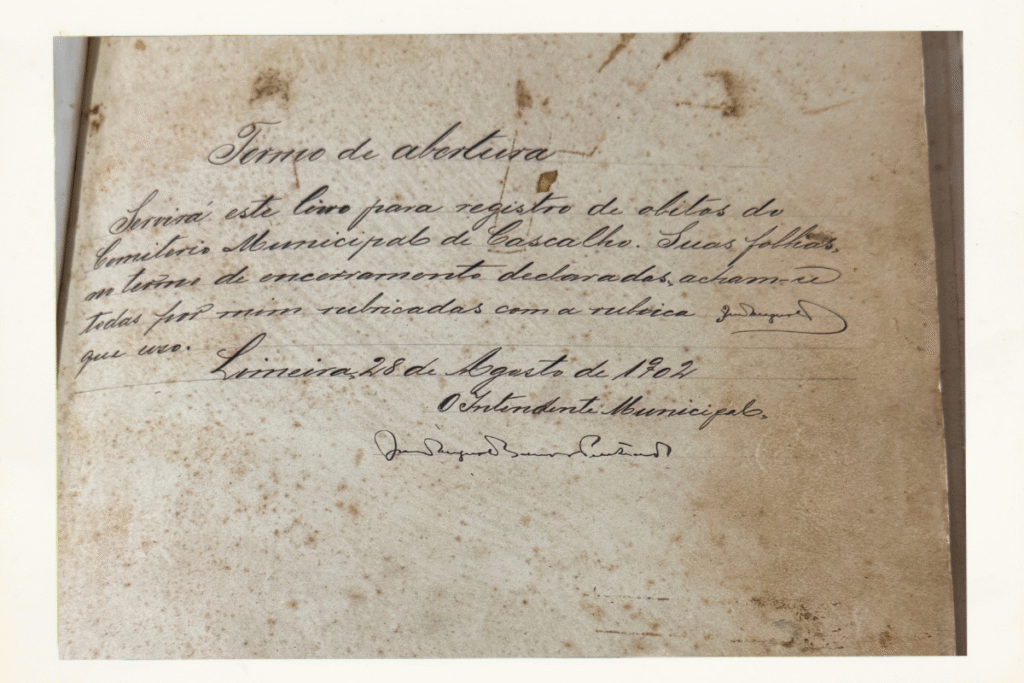 Termo de abertura
Servirá este livro para registro de obitos do
Cemiterio Municipal de Cascalho. Suas folhas,
no termo de encerramento declaradas, acham-se
todas por mim rubricadas com a rubrica
que uso.
Limeira, 28 de Agosto de 1902
O Intendente Municipal,